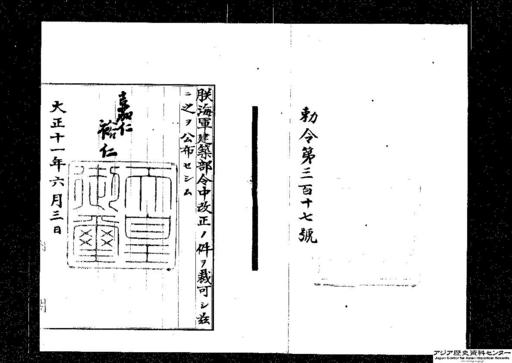 勅令第三百十七號
朕海軍建築部令中改正ノ件ヲ裁可シ茲
ニ之ヲ公布セシム
嘉仁
裕仁
天皇御璽
大正十一年六月三日
アジア歴史資料センター
Japan Center for Asian Historical Records